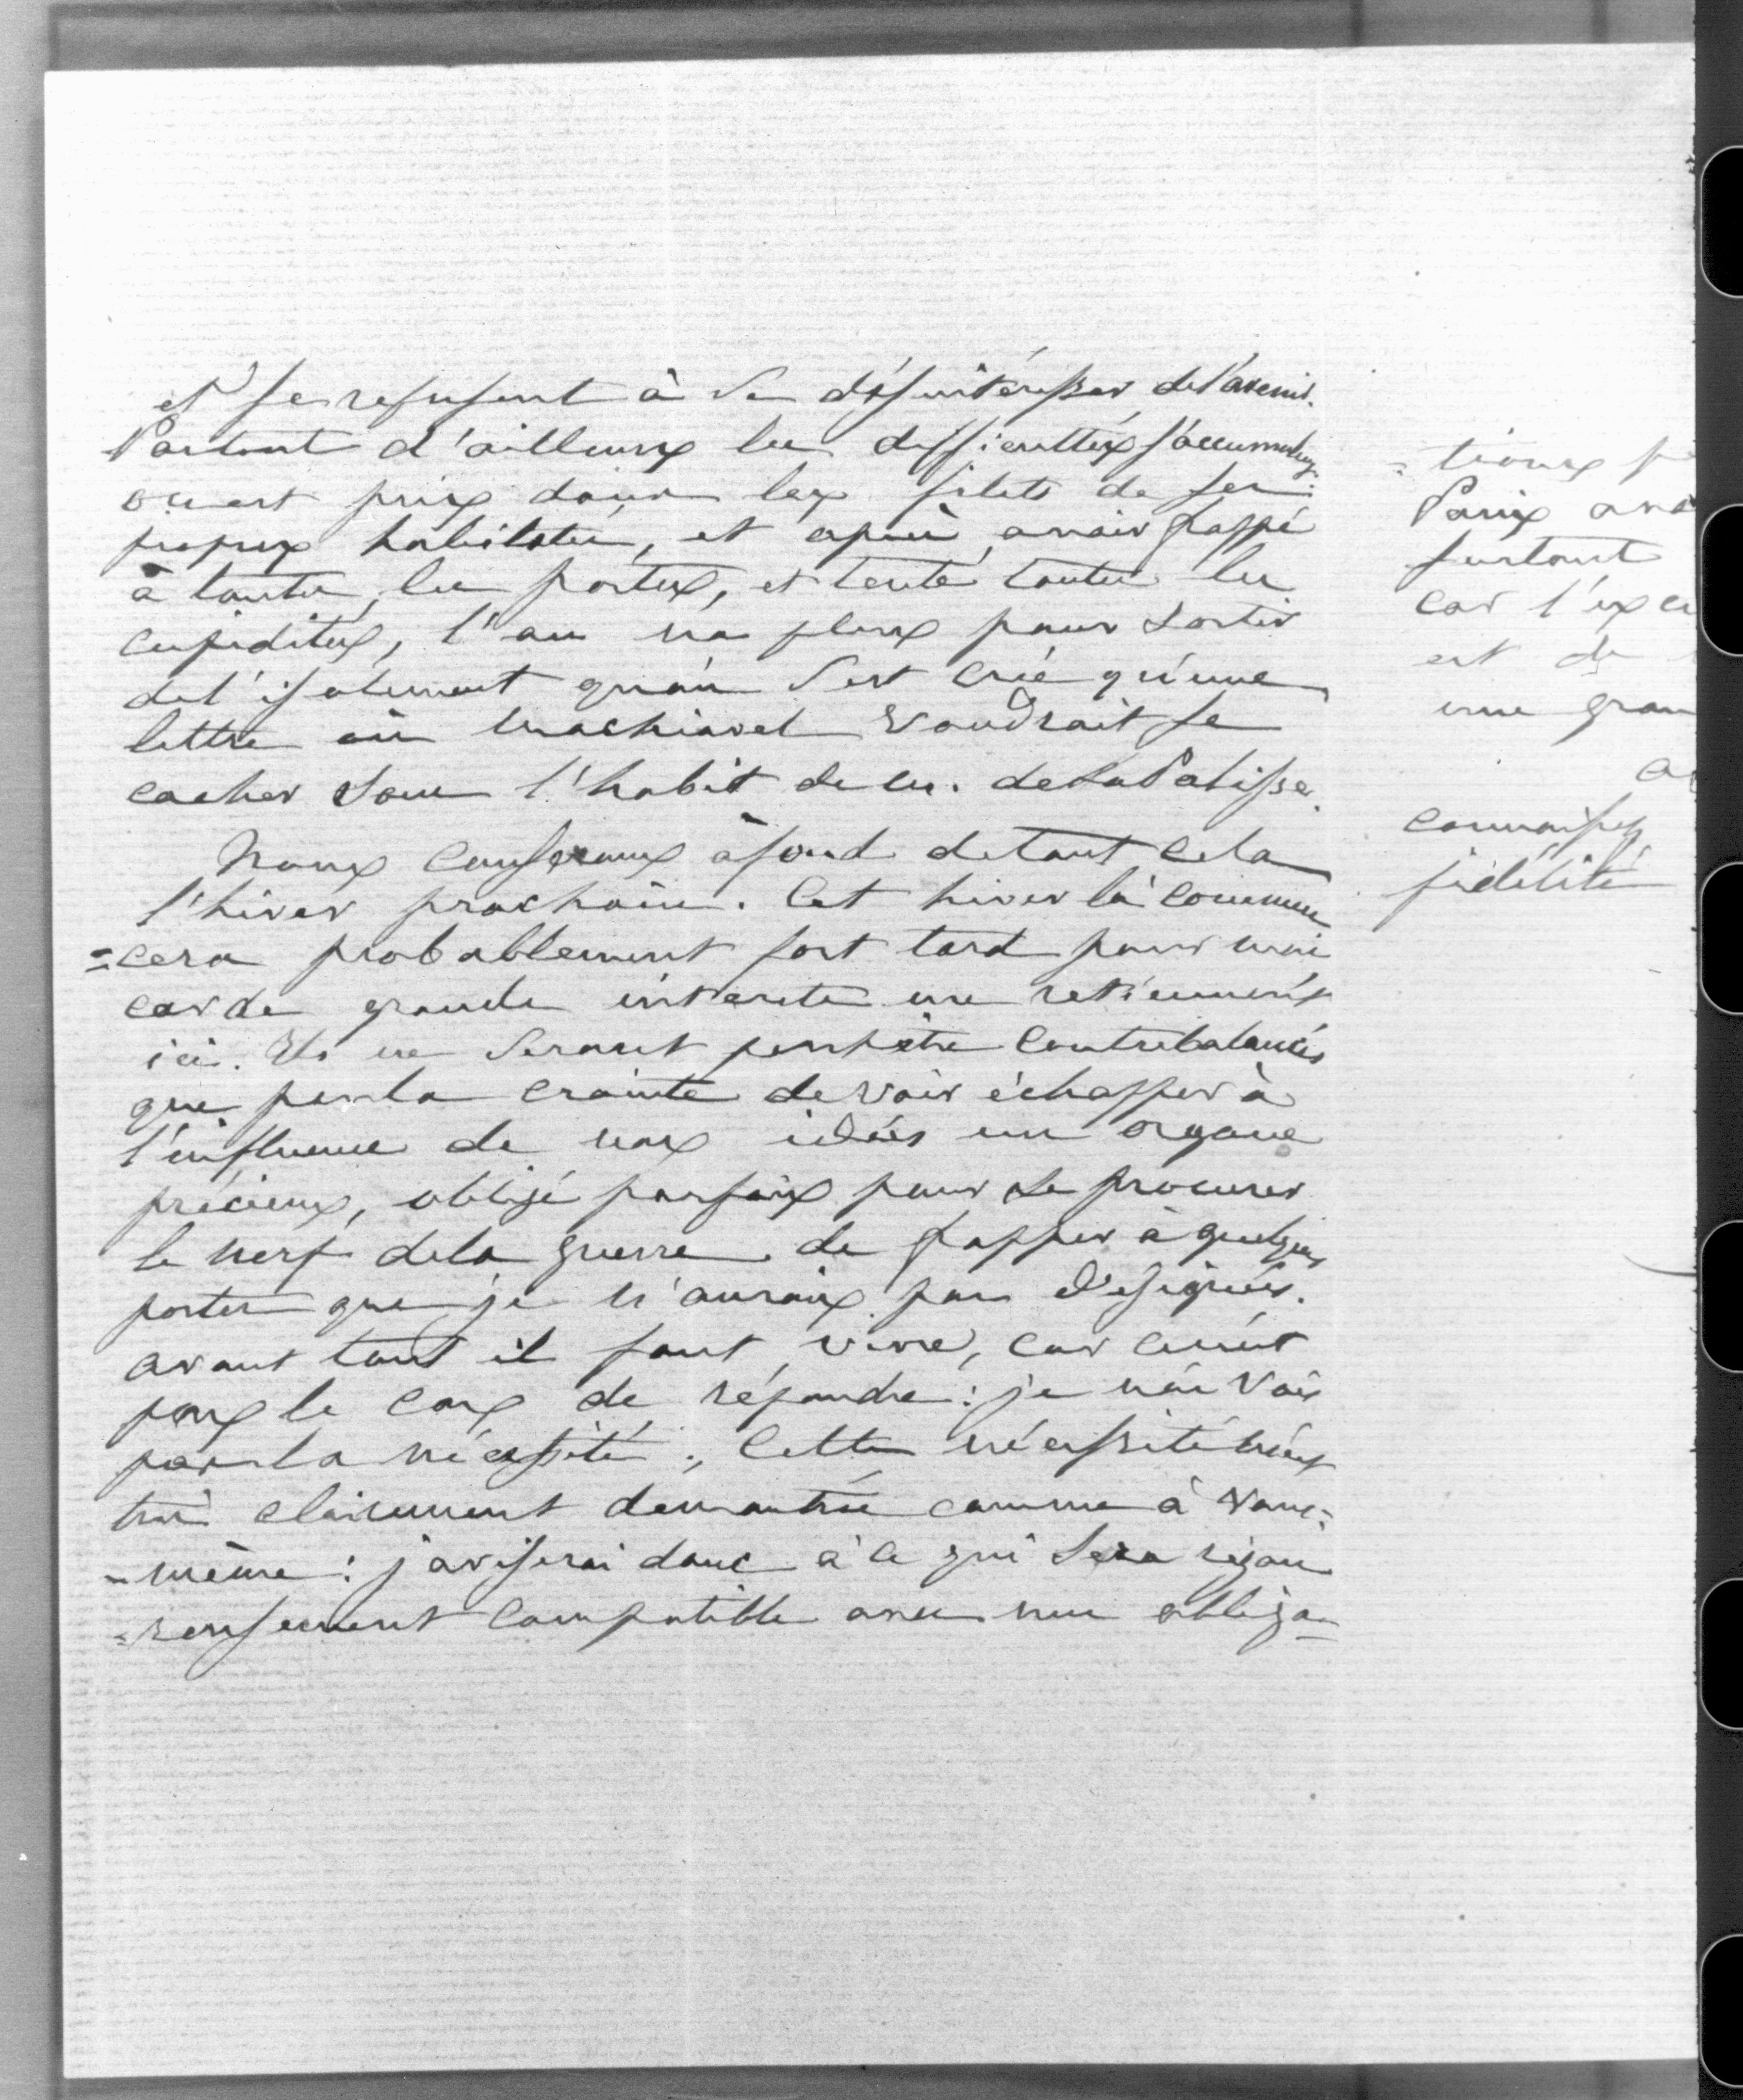 et se refusent à se désintéresser de l'avenir.
Partout d'ailleurs les difficultés s'accumulent,
on est pris dans les filets de ses
propres habiletés, et après avoir frappé
à toutes les portes, et tenté toutes les
cupidités, l'on n'a plus pour sortir
de l'isolement qu'on s'est créé qu'une
lettre où Machiavel voudrait se
cacher sous l'habit de M. de La Palisse.
Nous causerons à fond de tout cela
l'hiver prochain. Cet hiver là commen
=cera probablement fort tard pour moi
car de grands intérêts me retiennent
ici. Ils ne seront peutêtre contrebalancés
que par la crainte de voir échapper à
l'influence de nos idées un organe
précieux, obligé parfois pour se procurer
le nerf de la guerre de frapper à quelques
portes que je n'aurais pas désignées.
avant tout il faut vivre, car ce n'est
pas le cas de répondre : je n'en vois
pas la nécessité ; cette nécessité m'est
très clairement démontrée comme à vous=
-même : j'aviserai donc à ce qui sera rigou
=reusement compatible avec mes obliga=
=tions
Paris
surtout
car
est de
une
connaissez
fidélité